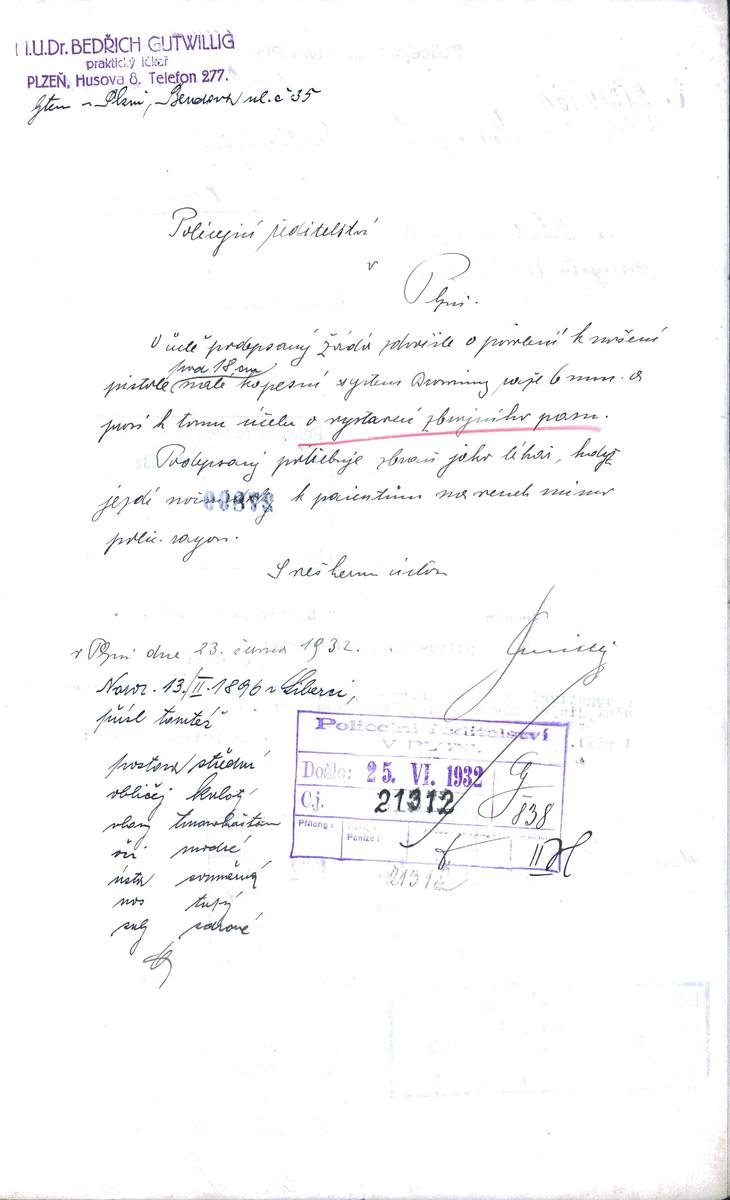 M.U.Dr. BEDŘICH GUTWILLIG
praktický lékař
PLZEŇ, Husova 8. Telefon 277.
v Plzni, Bendova ul. č 35
Policejní ředitelství
v
Plzni.
V úctě podepsaný žádá zdvořile o povolení k nošení
pod 18 cm
pistole malé kapesní system Browning ráže 6 mm. a
prosí k tomu účelu o vystavení zbrojního pasu.
Podepsaný potřebuje zbraň jako lékař, když
jezdí k pacientům na venek mimo
polic. rayon.
S veškerou úctou
v Plzni dne 23. června 1932.
Naroz. 13./II. 1896 v Liberci,
přísl tamtéž
postava střední
obličej kulatý
vlasy tmavokaštan
oči modré
ústa souměrná
nos tupý
zuby zdravé
Policejní ředitelství
V PLZNI.
Došlo: 25. VI. 1932
Č.j. 21312
G
838
Přílohy:
Peníze:
II
21312